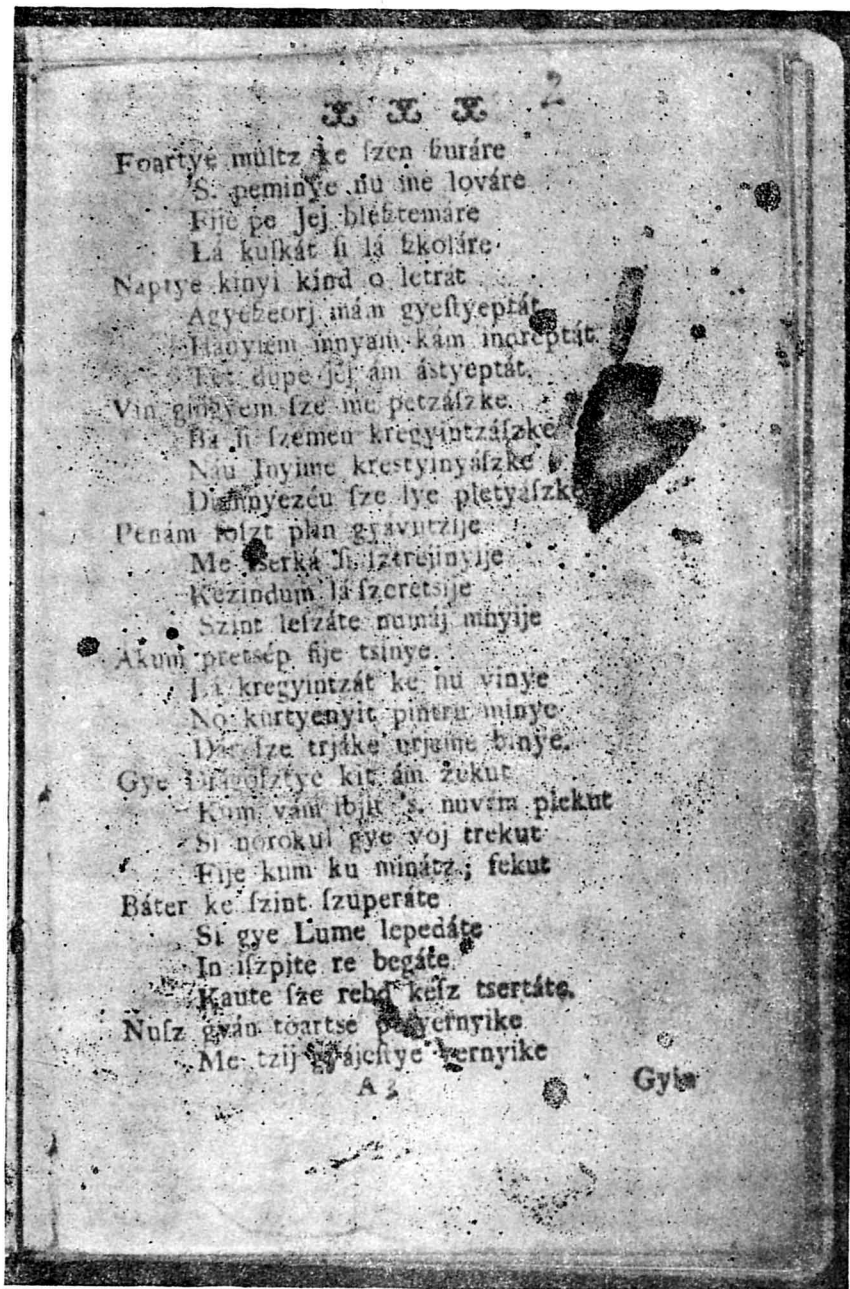 2
Foartye multz ke ſzen ƶuráre
'S. peminye nu me lováre
Fije pe Jej bleƶtemáre
Lá kuſkát ſi lá ƶkoláre
Naptye kinyi kind o letrát
mám gyeſtyeptát
innyam kám
Tot dupe jej ám ástyeptát.
Vin gingyem ſze me petzáſzke
Ba ſi ſzemen kregyintzáſzke
Náu Inyime krestyinyáſzke
ſze lye pletyáſzke
Penám foſzt plin gyávutzije
Me ſi ſztrejinyije
Kezindum lá ſzeretsije
Szint leſzáte numáj mnyije
Akum pretsép fije tsinye.
Lá kregyintzát ke nu vinye
No kurtyenyit pintru minye
ſze trjáke urjume binye.
Gye Drágoſztye kit ám ƶukut
Kum vám ibjit 's. nuvém plekut
Si norokul gye voj trekut
Fije kum ku minátz; fekut
Báter ke ſzint ſzuperáte
Si gye Lume lepedáte
In iſzpite re begáte
Kaute ſze rehd keſz tsertáte.
Nuſz gyán toartse
Me tzij vernyike
A 3